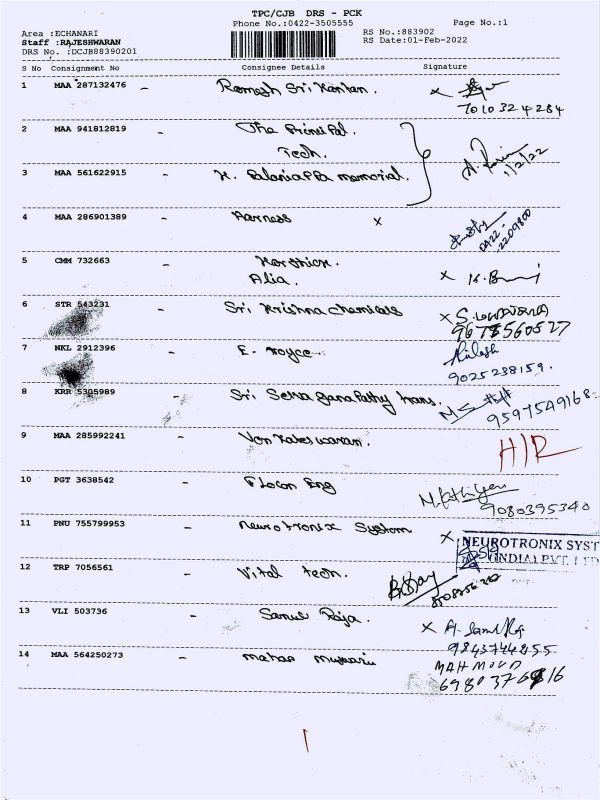 TPC/CJB DRS - PCK
Phone No.:0422-3505555
Page No.:1
Area :ECHANARI
RS No.:883902
Staff :RAJESHWARAN
RS Date:01-Feb-2022
DRS No. :DCJB88390201
S No Consignment No Consignee Details Signature
1 MAA 287132476 - Ramesh Sri Kantan. x
7010324284
2 MAA 941812819 - The Principal.
Tech.
1/2/22
3 MAA 561622915 - K. Palaniappa memorial.
4 MAA 286901389 - Harness x
5 CMM 732663 - Karthick.
Alia. x
6 STR 543231 Sri Krishna chemicals x
9678560527
7 NKL 2912396 - E. royce
9025238159.
8 KRR 5305989 - Sri Selva ganapathy trans.
9597549168
9 MAA 285992241 - Venkateswaran.
10 PGT 3638542 - Flocon Eng
9080395340
11 PNU 755799953 - Neurotronix System x
NEUROTRONIX SYST
(INDIA) PVT. LTD
12 TRP 7056561 - Vital tech.
13 VLI 503736 - Samuel Raja. x
9843744855
14 MAA 564250273 -
MAHMOUD